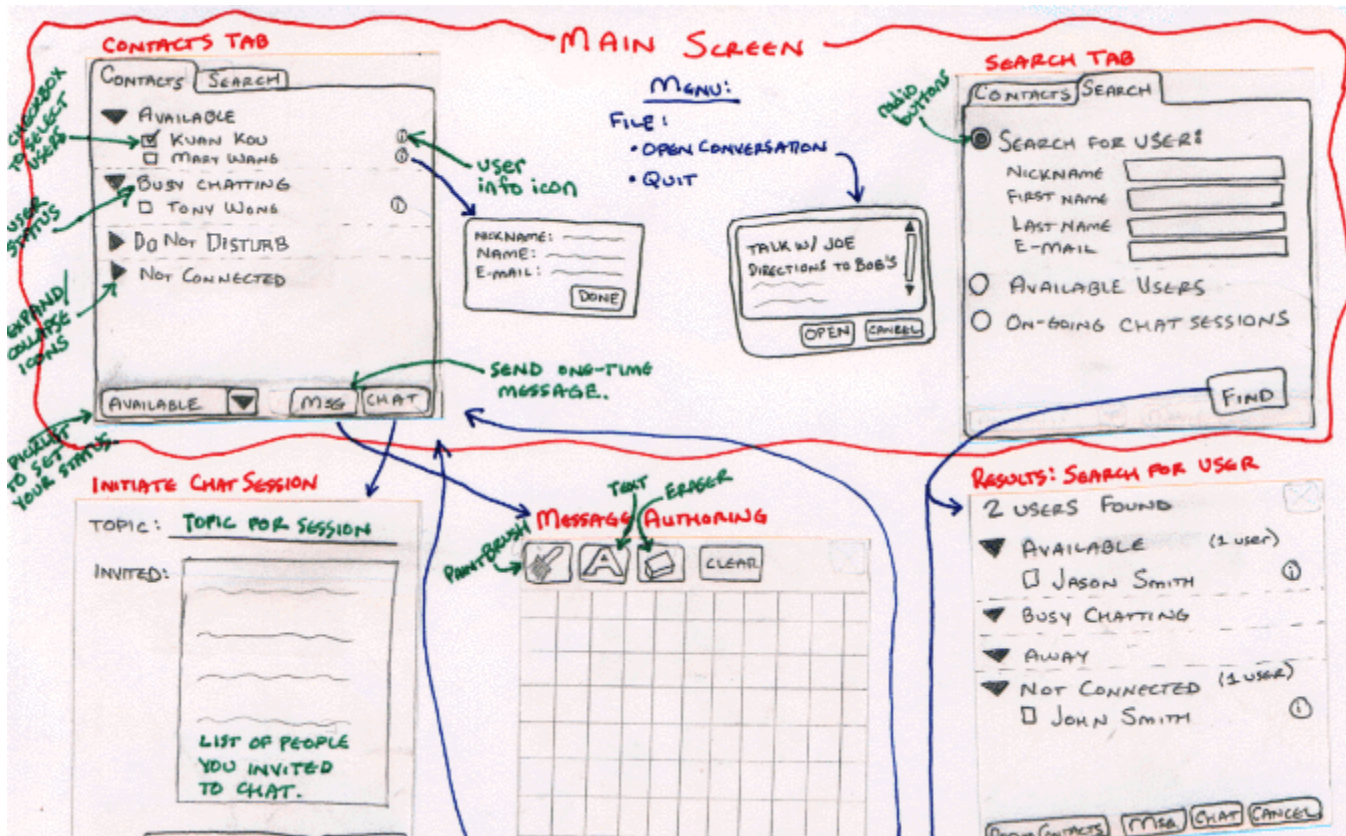 MAIN SCREEN
CONTACTS TAB
CONTACTS SEARCH
AVAILABLE
KUAN KOU
MARY WANG
BUSY CHATTING
TONY WONG
DO NOT DISTURB
NOT CONNECTED
AVAILABLE MSG CHAT
CHECKBOX
TO SELECT
USERS
USER
STATUS
EXPAND/
COLLAPSE
ICONS
PICKLIST
TO SET
YOUR STATUS.
user
info icon
SEND ONE-TIME
MESSAGE.
NICKNAME:
NAME:
E-MAIL:
DONE
MENU:
FILE:
• OPEN CONVERSATION
• QUIT
TALK W/ JOE
DIRECTIONS TO BOB'S
OPEN CANCEL
SEARCH TAB
CONTACTS SEARCH
radio
buttons
SEARCH FOR USER:
NICKNAME
FIRST NAME
LAST NAME
E-MAIL
AVAILABLE USERS
ON-GOING CHAT SESSIONS
FIND
INITIATE CHAT SESSION
TOPIC: TOPIC FOR SESSION
INVITED:
LIST OF PEOPLE
YOU INVITED
TO CHAT.
MESSAGE AUTHORING
PAINTBRUSH
TEXT
ERASER
A CLEAR
RESULTS: SEARCH FOR USER
2 USERS FOUND
AVAILABLE (1 user)
JASON SMITH
BUSY CHATTING
AWAY
NOT CONNECTED (1 USER)
JOHN SMITH
CONTACTS MSG CHAT CANCEL